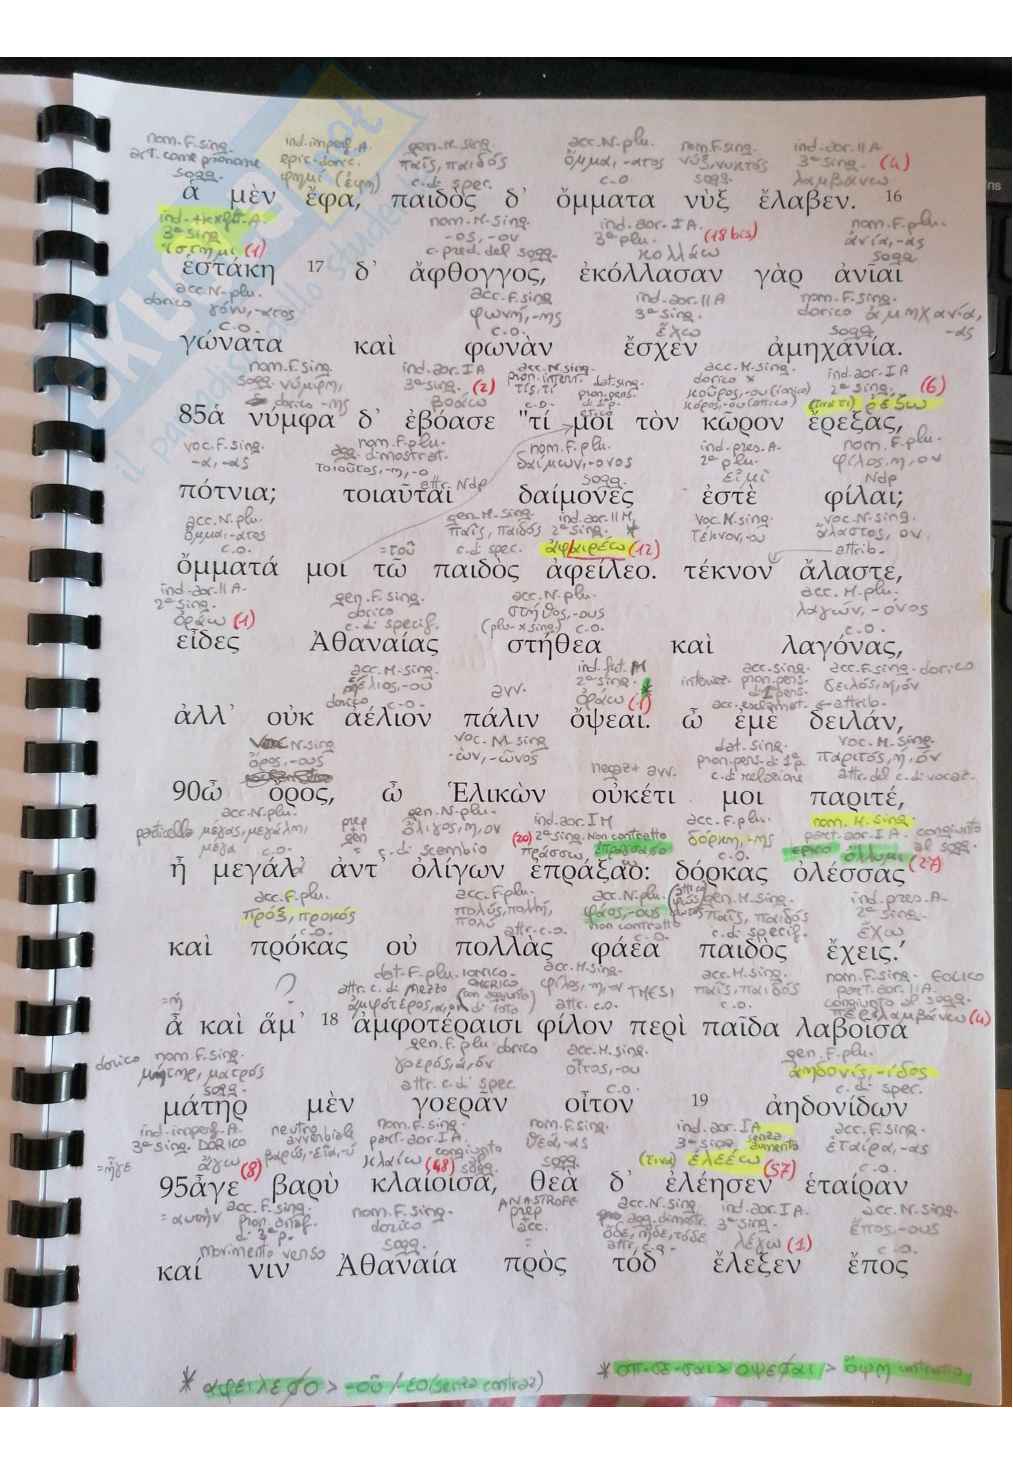 nom. F. sing. ind. imperf. A. gen. M. sing. acc. N. plu. nom. F. sing. ind. aor. II A
art. come pronome epic.-doric. παῖς, παιδός ὄμμα, -ατος νύξ, νυκτός 3ª sing. (4)
sogg. φημί (ἔφη) c. di spec. c.o. sogg. λαμβάνω
ἁ μὲν ἔφα, παιδὸς δ᾽ ὄμματα νὺξ ἔλαβεν. 16
3ª sing. nom. M. sing. ind. aor. I A nom. F. plu.
ἵστημι (1) -ος, -ον 3ª plu. (18 bis) ἀνία, -ας
c. pred. del sogg. κολλάω sogg.
ἑστάκη 17 δ᾽ ἄφθογγος, ἐκόλλασαν γὰρ ἀνῖαι
acc. N. plu. acc. F. sing. ind. aor. II A nom. F. sing.
dorico γόνυ, -ατος φωνή, -ης 3ª sing. dorico ἀμηχανία, -ας
c.o. c.o. ἔχω sogg.
γώνατα καὶ φωνὰν ἔσχεν ἀμηχανία.
nom. F. sing. ind. aor. I A acc. N. sing. dat. sing. acc. M. sing. ind. aor. I A
sogg. νύμφη, 3ª sing. (2) pron. interr. pron. pers. dorico x 2ª sing. (6)
dorico -ης βοάω τίς, τί κοῦρος, -ου (ionico) ῥέζω
c.o. etico κόρος, -ου (attico)
85ἁ νύμφα δ᾽ ἐβόασε "τί μοι τὸν κῶρον ἔρεξας,
voc. F. sing. nom. F. plu. nom. F. plu. ind. pres. A. nom. F. plu.
-α, -ας agg. dimostrat. δαίμων, -ονος 2ª plu. φίλος, η, ον
τοιοῦτος, -η, -ο attr. Ndp sogg. εἰμί Ndp
πότνια; τοιαῦται δαίμονες ἐστὲ φίλαι;
acc. N. plu. gen. M. sing. ind. aor. II M. voc. N. sing. voc. N. sing.
ὄμμα, -ατος παῖς, παιδός 2ª sing. * τέκνον, -ου ἄλαστος, ον
c.o. = τοῦ c. di spec. ἀφαιρέω (12) attrib.
ὄμματά μοι τῶ παιδὸς ἀφείλεο. τέκνον ἄλαστε,
ind. aor. II A. gen. F. sing. acc. N. plu. acc. M. plu.
2ª sing. dorico στῆθος, -ους λαγών, -όνος
ὁράω (1) c. di specif. (plu. x sing.) c.o. c.o.
εἶδες Ἀθαναίας στήθεα καὶ λαγόνας,
acc. M. sing. ind. fut. M acc. sing. acc. F. sing. dorico
ἥλιος, -ου avv. 2ª sing. * pron. pers. δειλός, η, όν
dorico c.o. ὁράω (1) attrib.
ἀλλ᾽ οὐκ ἀέλιον πάλιν ὄψεαι. ὢ ἐμὲ δειλάν,
N. sing. voc. M. sing dat. sing. voc. N. sing.
ὄρος, -ους -ών, -ῶνος pron. pers. di 1ª p. παριτός, η, όν
negaz + avv. c. di relazione attr. del c. di vocaz.
90ὢ ὄρος, ὢ Ἑλικὼν οὐκέτι μοι παριτέ,
acc. N. plu. gen. N. plu. ind. aor. I M acc. F. plu. nom. M. sing.
particella μέγας, μεγάλη, prep ὀλίγος, η, ον (20) 2ª sing. Non contratto δόρκη, -ης part. aor. I A. congiunto
μέγα c.o. gen c. di scambio πράσσω, ἐπραξασο c.o. epico ὄλλυμι (27) al sogg.
ἦ μεγάλ᾽ ἀντ᾽ ὀλίγων ἐπράξαο: δόρκας ὀλέσσας
acc. F. plu. acc. F. plu. acc. N. plu. gen. M. sing. ind. pres. A.
πρόξ, προκός πολύς, πολλή, φάος, -ους παῖς, παιδός 2ª sing.
c.o. πολύ attr. c.o. non contratto c. di specif. ἔχω
καὶ πρόκας οὐ πολλὰς φάεα παιδὸς ἔχεις.᾽
dat. F. plu. ionico acc. M. sing. acc. M. sing. nom. F. sing. EOLICO
=ἡ ? attr. c. di mezzo OMERICO φίλος, η, ον TMESI παῖς, παιδός part. aor. II A.
ἀμφότερος, α, ον attr. c.o. c.o. congiunto al sogg.
περιλαμβάνω (4)
ἁ καὶ ἅμ᾽ 18 ἀμφοτέραισι φίλον περὶ παῖδα λαβοῖσα
dorico nom. F. sing. gen. F. plu dorico acc. M. sing. gen. F. plu.
μήτηρ, ματρός γοερός, ά, όν οἶτος, -ου ἀηδονίς, -ίδος
sogg. attr. c. di spec. c.o. c. di spec.
μάτηρ μὲν γοερᾶν οἶτον 19 ἀηδονίδων
ind. imperf. A. neutro nom. F. sing. nom. F. sing. ind. aor. I A acc. F. sing.
3ª sing. DORICO avverbiale part. aor. I A. θεά, -ας 3ª sing. senza aumento ἑταίρα, -ας
=ἦγε ἄγω (8) βαρύς, -εῖα, -ύ κλαίω (48) congiunto sogg. sogg. (τινα) ἐλεέω (57) c.o.
95ἆγε βαρὺ κλαίοισα, θεὰ δ᾽ ἐλέησεν ἑταίραν
= αυτήν acc. F. sing. nom. F. sing. ANASTROFE acc. N. sing. ind. aor. I A. acc. N. sing.
pron. anaf. dorico prep agg. dimostr. 3ª sing. ἔπος, -ους
di 3ª p. sogg. acc. ὅδε, ἥδε, τόδε λέγω (1) c.o.
movimento verso = attr. c.o.
καί νιν Ἀθαναία πρὸς τόδ᾽ ἔλεξεν ἔπος
* αφειλεσο > -ου / -εο (senza contraz) * οπ-σε-σαι > οψεσαι > ὄψη contratto